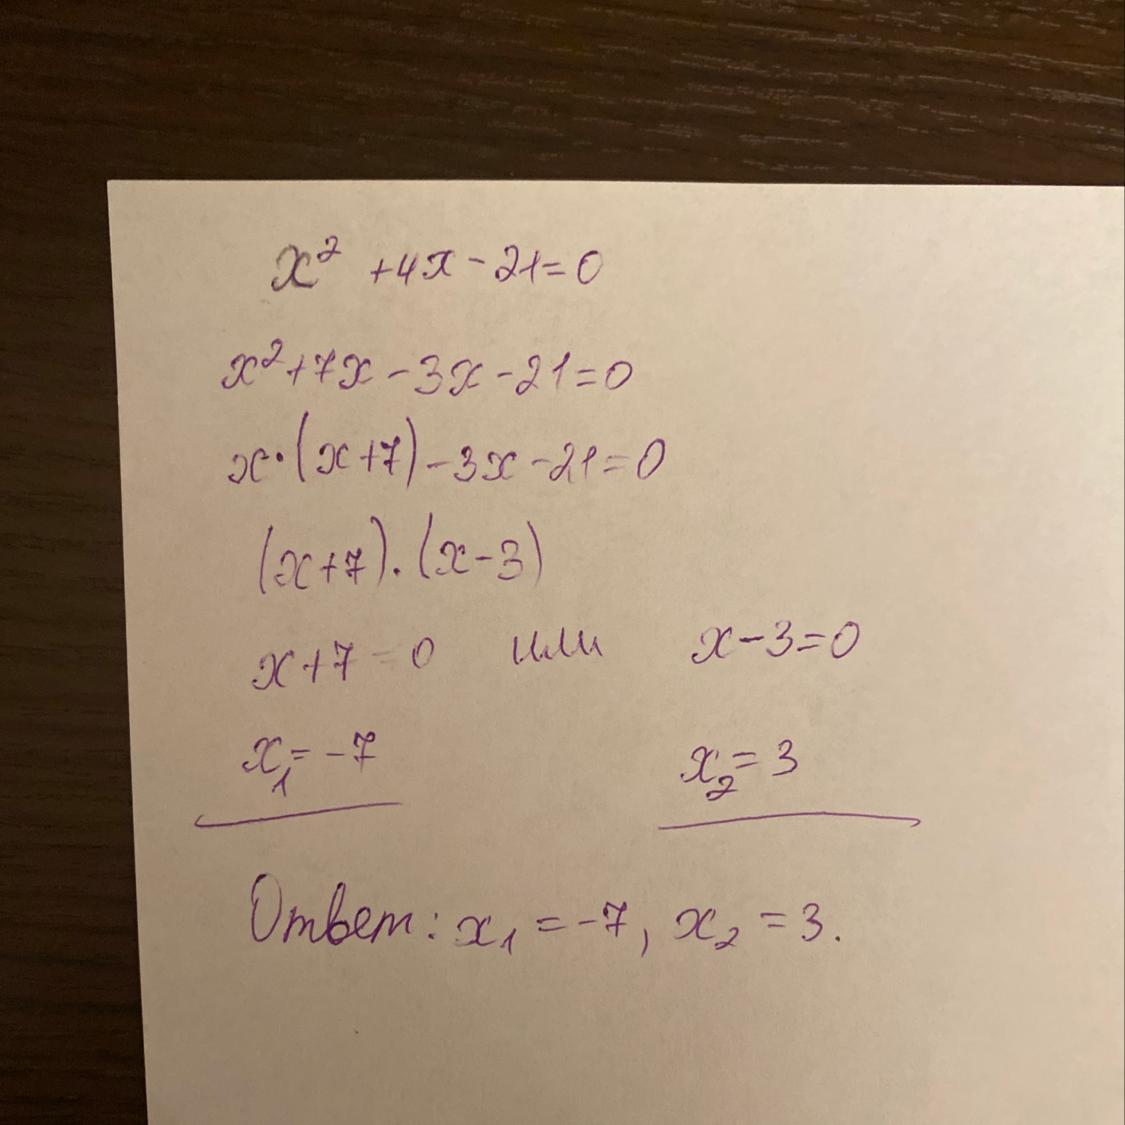 x² + 4x - 21 = 0
x² + 7x - 3x - 21 = 0
x · (x + 7) - 3x - 21 = 0
(x + 7) · (x - 3)
x + 7 = 0 или x - 3 = 0
x₁ = -7 x₂ = 3
Ответ: x₁ = -7, x₂ = 3.